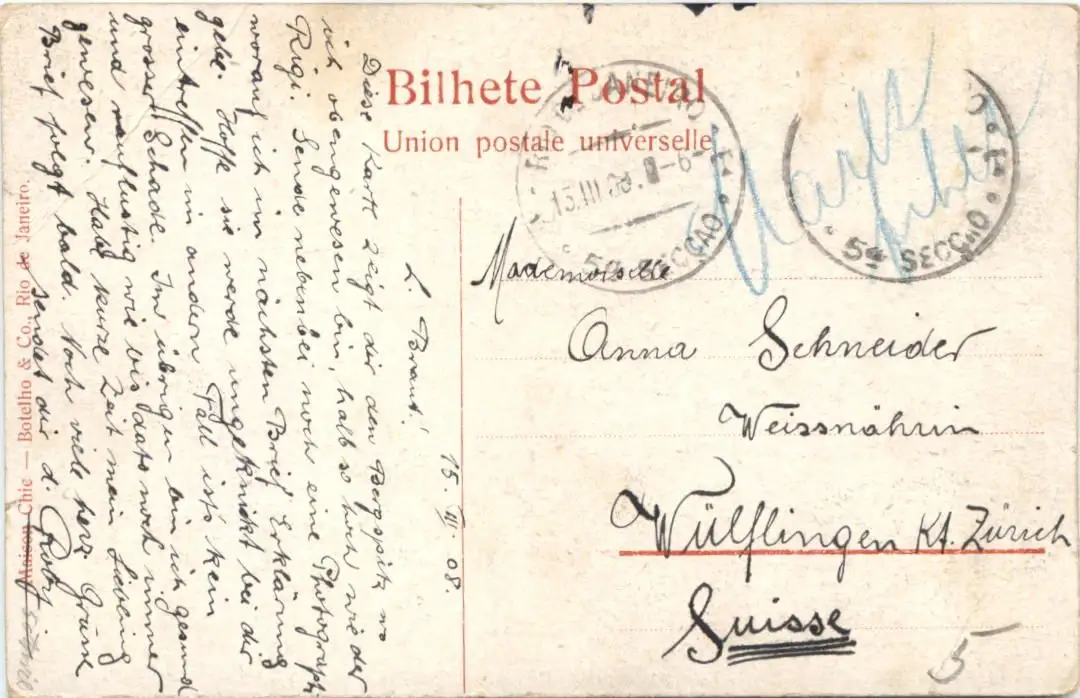 Bilhete Postal
Union postale universelle
15. III. 08.
L. Braut!
Diese Karte zeigt dir den Bergspitz wo
ich obengewesen bin, halb so hoch wie der
Rigi. Sende nebenbei noch eine Photograph.
worauf ich im nächsten Brief Erklärung
gebe. Hoffe sie werde ungeknikt bei dir
eintreffen im andern Fall ist's kein
grosser Schade. Im übrigen bin ich gesund
und rauflustig wie bis dato noch immer
gewesen. Habe kurze Zeit mein Liebling
Brief folgt bald. Noch viele herz. Grüsse
sendet dir d.
Mademoiselle
Anna Schneider
Weissnähin
Wülflingen Kt. Zürich
Suisse
5
RIO DE JANEIRO
15.III.08. 6-
5ª SECCAO
5ª SECCAO
Maison Chic — Botelho & Co., Rio de Janeiro.